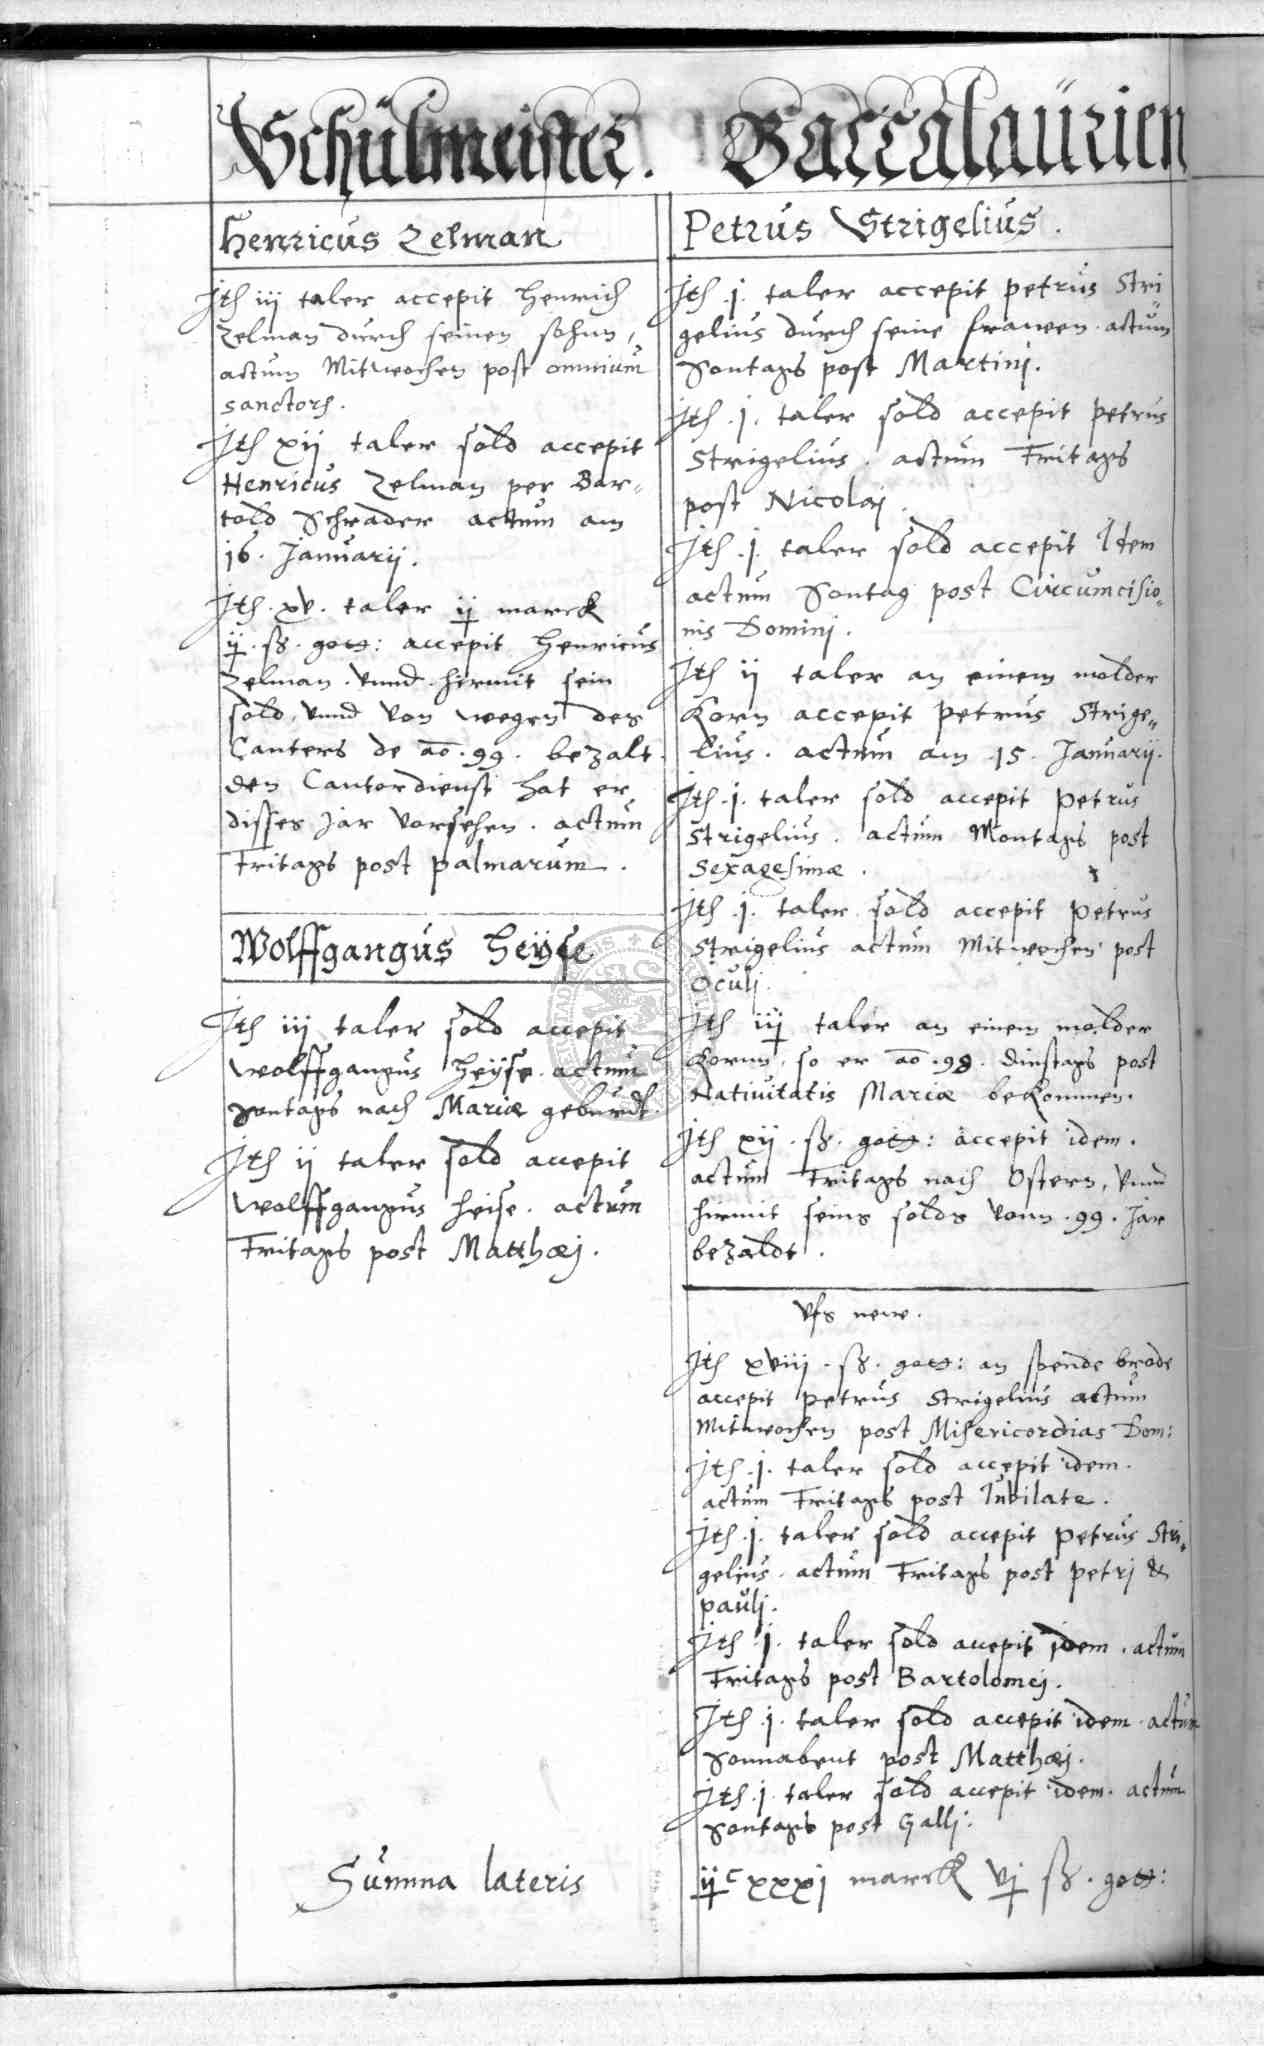 Schulmeister.
Henricus Zelman
Jth iij taler accepit Henrich
Zelman durch seinen sohnn,
actum Mitwochen post omnium
sanctorh.
Jth xij taler sold accepit
Henricus Zelman per Bar„
told Schrader actum am
16. Januarij.
Jth. xv. taler ij marck
ij. ß. gott: accepit Henricus
Zelman. vnnd hirmit sein
sold, vnnd von wegen des
Canters de ao. 99. bezalt.
den Cantordienst hat er
disses jar vorsehen. actum
Fritags post palmarum.
Wolffgangus Heÿse
Jth iij taler sold accepit
Wolffgangus Heÿse. actum
Sontags nach Mariæ geburdt.
Jth ij taler sold accepit
Wolffgangus heise. actum
Fritags post Matthæj.
Baccalaürien
Petrus Strigelius.
Jth. j. taler accepit petrus Stri„
gelius durch seine frawen. actum
Sontags post Martinj.
Jth. j. taler sold accepit petrus
Strigelius. actum Fritags
post Nicolaj.
Jth. j. taler sold accepit Idem
actum Sontag post Circumcisio„
nis Dominj.
Jth ij taler an einem molder
Korn accepit petrus Strige„
lius. actum am .15. Januarij.
Jth. j. taler sold accepit petrus
Strigelius. actum Montags post
Sexagesimæ.
Jth. j. taler sold accepit petrus
Strigelius actum Mitwochen post
Oculj.
Jth iij taler an einem molder
Kornn, so er ao. 98. dinstags post
Natiuitatis Mariæ bekommen.
Jth xij. ß. gott: accepit idem.
actum Fritags nach Ostern, vnnd
hirmit seins solds vonn .99. Jar
bezaldt.
vfs new.
Jth xviij. ß. gott: an spende brode
accepit petrus Strigelius actum
Mitwochen post Misericordias Dom:
Jth. j. taler sold accepit idem.
actum Fritags post Iubilate.
Jth. j. taler sold accepit petrus Stri„
gelius. actum Fritags post petrj &
paulj.
Jth. j. taler sold accepit idem. actum
Fritags post Bartolomej.
Jth. j. taler sold accepit idem. actum
Sonnabent post Matthæj.
Jth. j. taler sold accepit idem. actum
Sontags post Gallj:
Summa lateris ijc xxxj marck vj ß. gott: